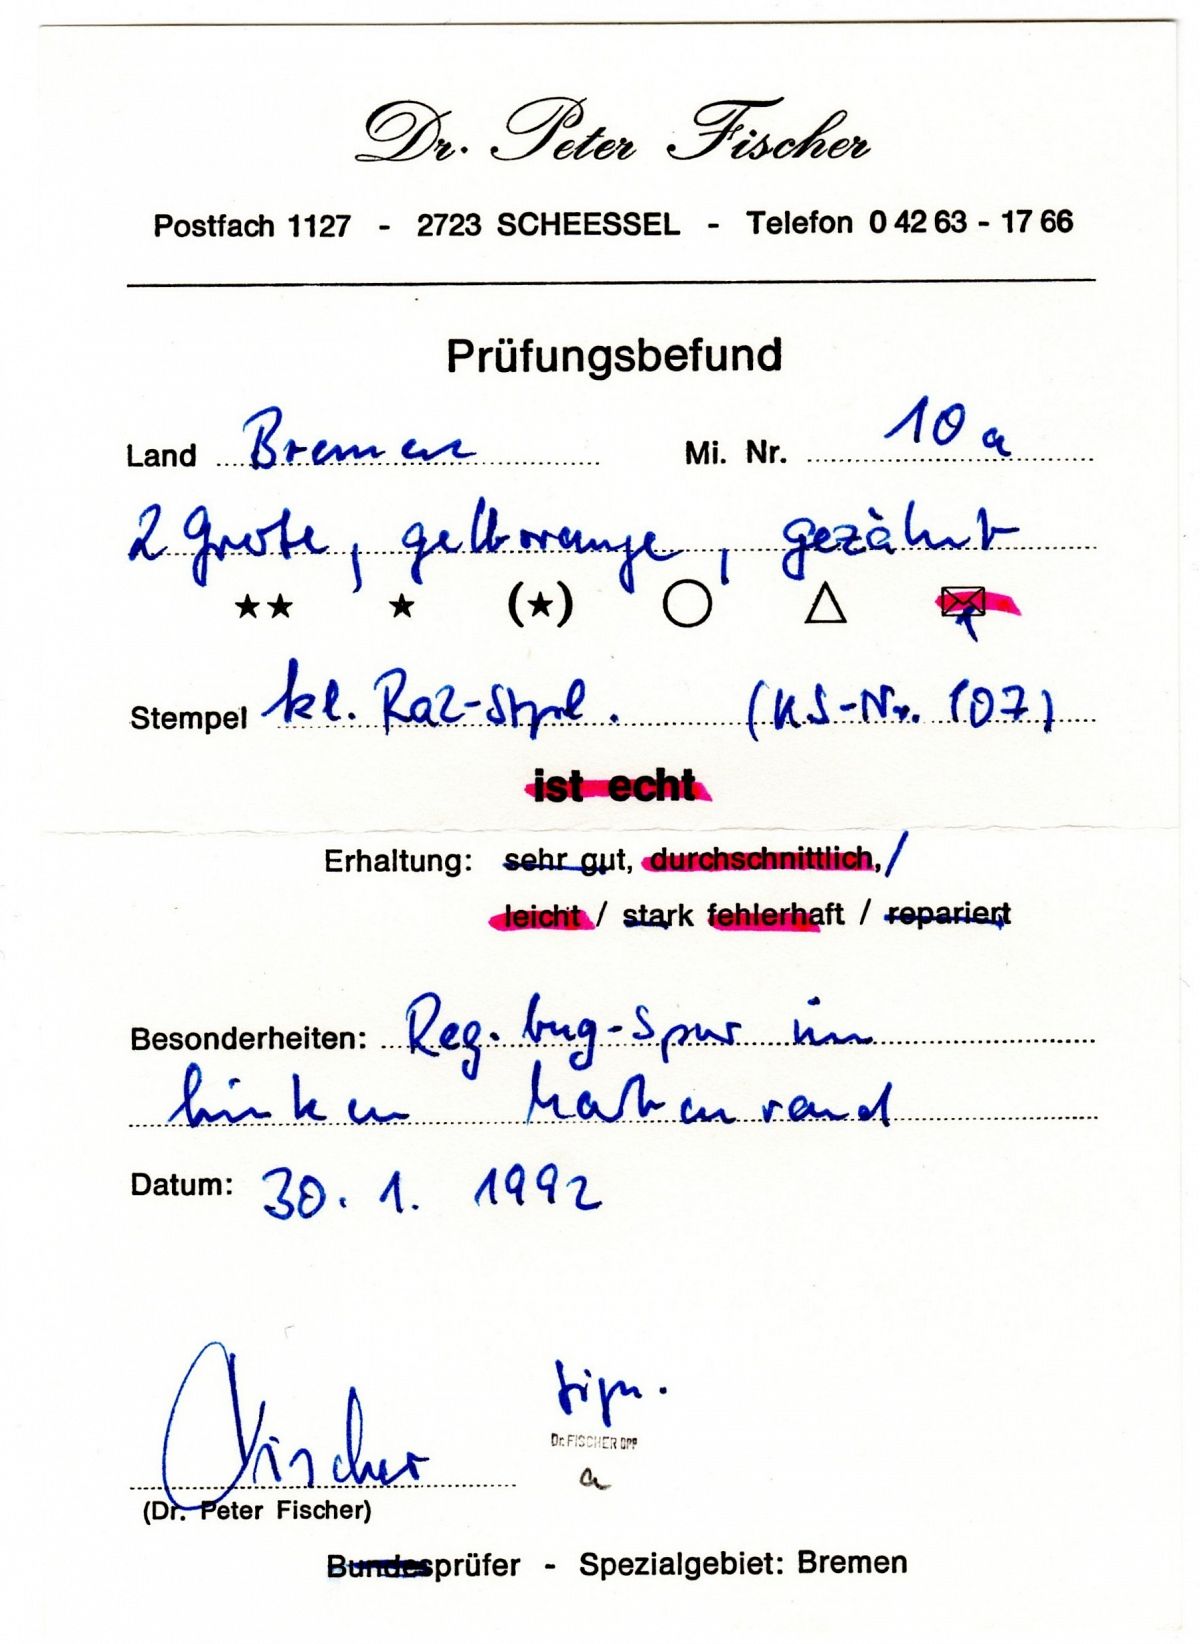 Dr. Peter Fischer
Postfach 1127 - 2723 SCHEESSEL - Telefon 0 42 63 - 17 66
Prüfungsbefund
Land Bremen Mi. Nr. 10 a
2 Grote, gelborange, gezähnt
★★ ★ (★) ○ △ ✉
Stempel kl. Ra2-Stpel. (KS-Nr. 107)
ist echt
Erhaltung: sehr gut, durchschnittlich, /
leicht / stark fehlerhaft / repariert
Besonderheiten: Reg. bug-Spur im
linken Markenrand
Datum: 30. 1. 1992
sign.
Dr. FISCHER BPP
a
Fischer
(Dr. Peter Fischer)
Bundesprüfer - Spezialgebiet: Bremen